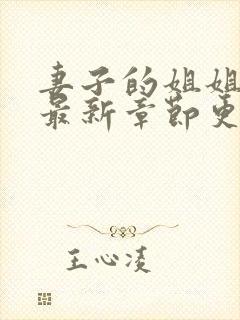 妻子的姐姐
最新章节更
王心凌